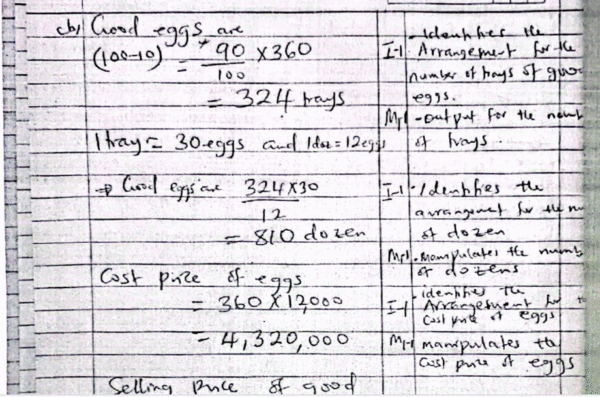 (b) Good eggs are
(100-10) = 90/100 X360
= 324 trays
1 tray = 30 eggs and 1doz = 12eggs
⇒ Good eggs are 324X30/12
= 810 dozen
Cost price of eggs
= 360 X 12,000
= 4,320,000
Selling Price of good
I-1 - Identifies the
Arrangement for the
number of trays of
eggs.
M-1 - output for the
of trays.
I-1 - Identifies the
arrangement for the
of dozen
M-1 - manipulates the
of dozens
I-1 - identifies the
Arrangement for
Cost price of eggs
M-1 manipulates the
Cost price of eggs